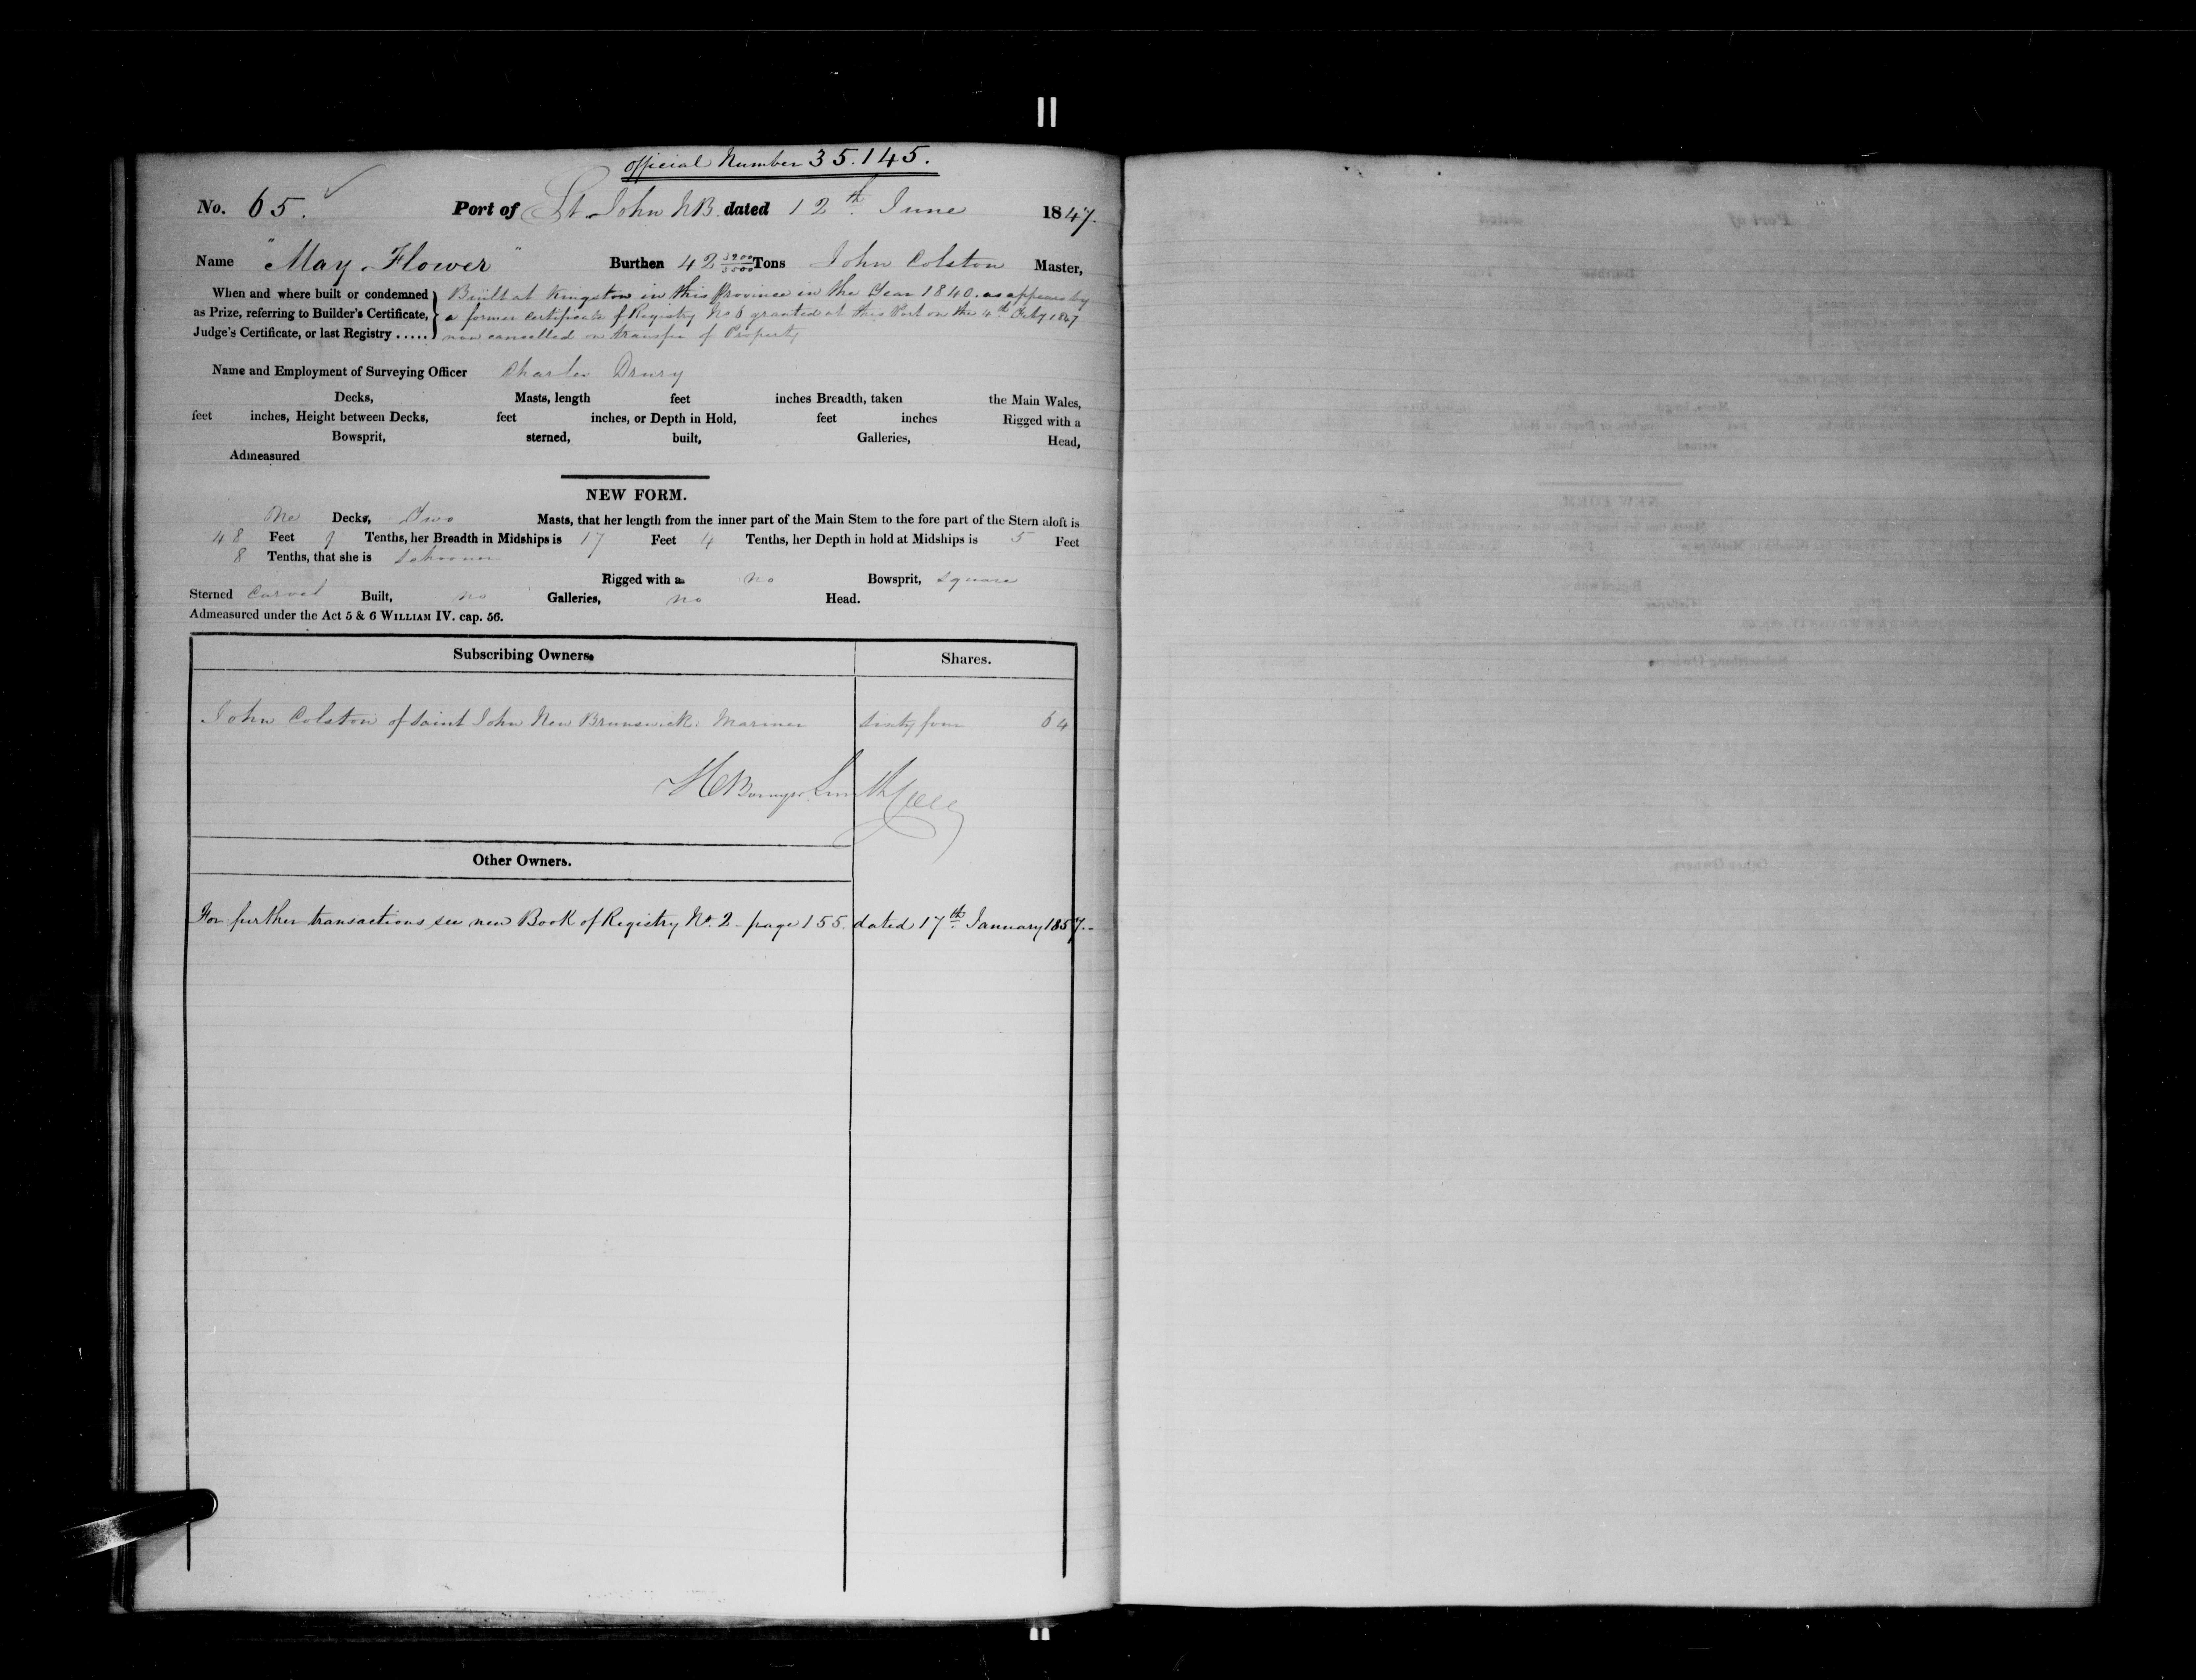 Official Number 35.145.
No. 65. Port of St. John NB. dated 12th June 1847.
Name "May Flower" Burthen 42 Tons John Colston Master,
When and where built or condemned as Prize, referring to Builder's Certificate, Judge's Certificate, or last Registry .....
Built at Kingston in this Province in the Year 1840. as appears by
a former Certificate of Registry No 6 granted at this Port on the 4th Feby 1847
now cancelled on transfer of Property
Name and Employment of Surveying Officer Charles Drury
Decks, Masts, length feet inches Breadth, taken the Main Wales,
feet inches, Height between Decks, feet inches, or Depth in Hold, feet inches Rigged with a
Bowsprit, sterned, built, Galleries, Head,
Admeasured
NEW FORM.
One Decks, Two Masts, that her length from the inner part of the Main Stem to the fore part of the Stern aloft is
48 Feet Tenths, her Breadth in Midships is 17 Feet 4 Tenths, her Depth in hold at Midships is 5 Feet
8 Tenths, that she is Schooner
Rigged with a no Bowsprit, square
Sterned Carvel Built, no Galleries, no Head.
Admeasured under the Act 5 & 6 WILLIAM IV. cap. 56.
Subscribing Owners. Shares.
John Colston of Saint John New Brunswick. Mariner sixty four 64
Smith
Other Owners.
For further transactions see new Book of Registry No. 2 - page 155. dated 17th January 1857.-